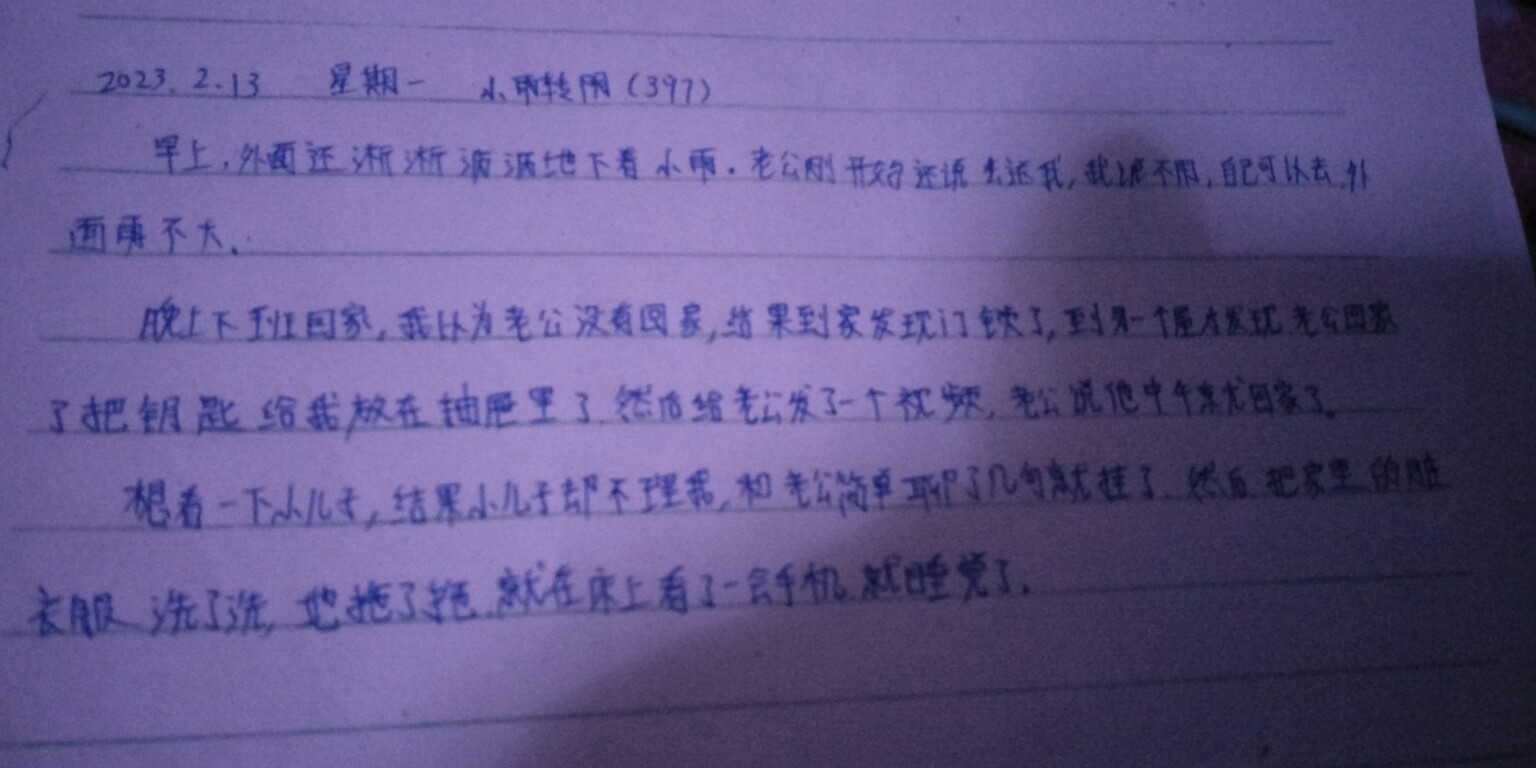 2023.2.13 星期一 小雨转阴(397)
早上,外面还淅淅沥沥地下着小雨。老公刚开始还说去送我,我说不用,自己可以去,外
面雨不大。
晚上下班回家,我以为老公没有回家,结果到家发现门锁了,到另一个屋才发现老公回家
了把钥匙给我放在抽屉里了.然后给老公发了一个视频,老公说他中午就回家了。
想看一下小儿子,结果小儿子却不理我,和老公简单聊了几句就挂了.然后把家里的脏
衣服洗了洗,地拖了拖.就在床上看了一会手机就睡觉了.